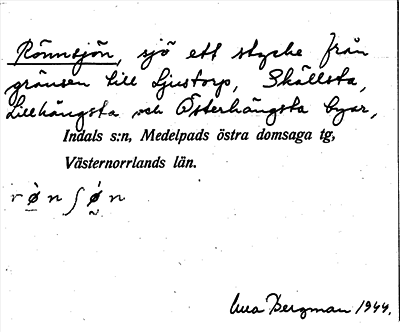 Rönnsjön, sjö ett stycke från
gränsen till Ljustorp, Skällsta,
Lillhängsta och Österhängsta byar,
Indals s:n, Medelpads östra domsaga tg,
Västernorrlands län.
Bergman 1944.